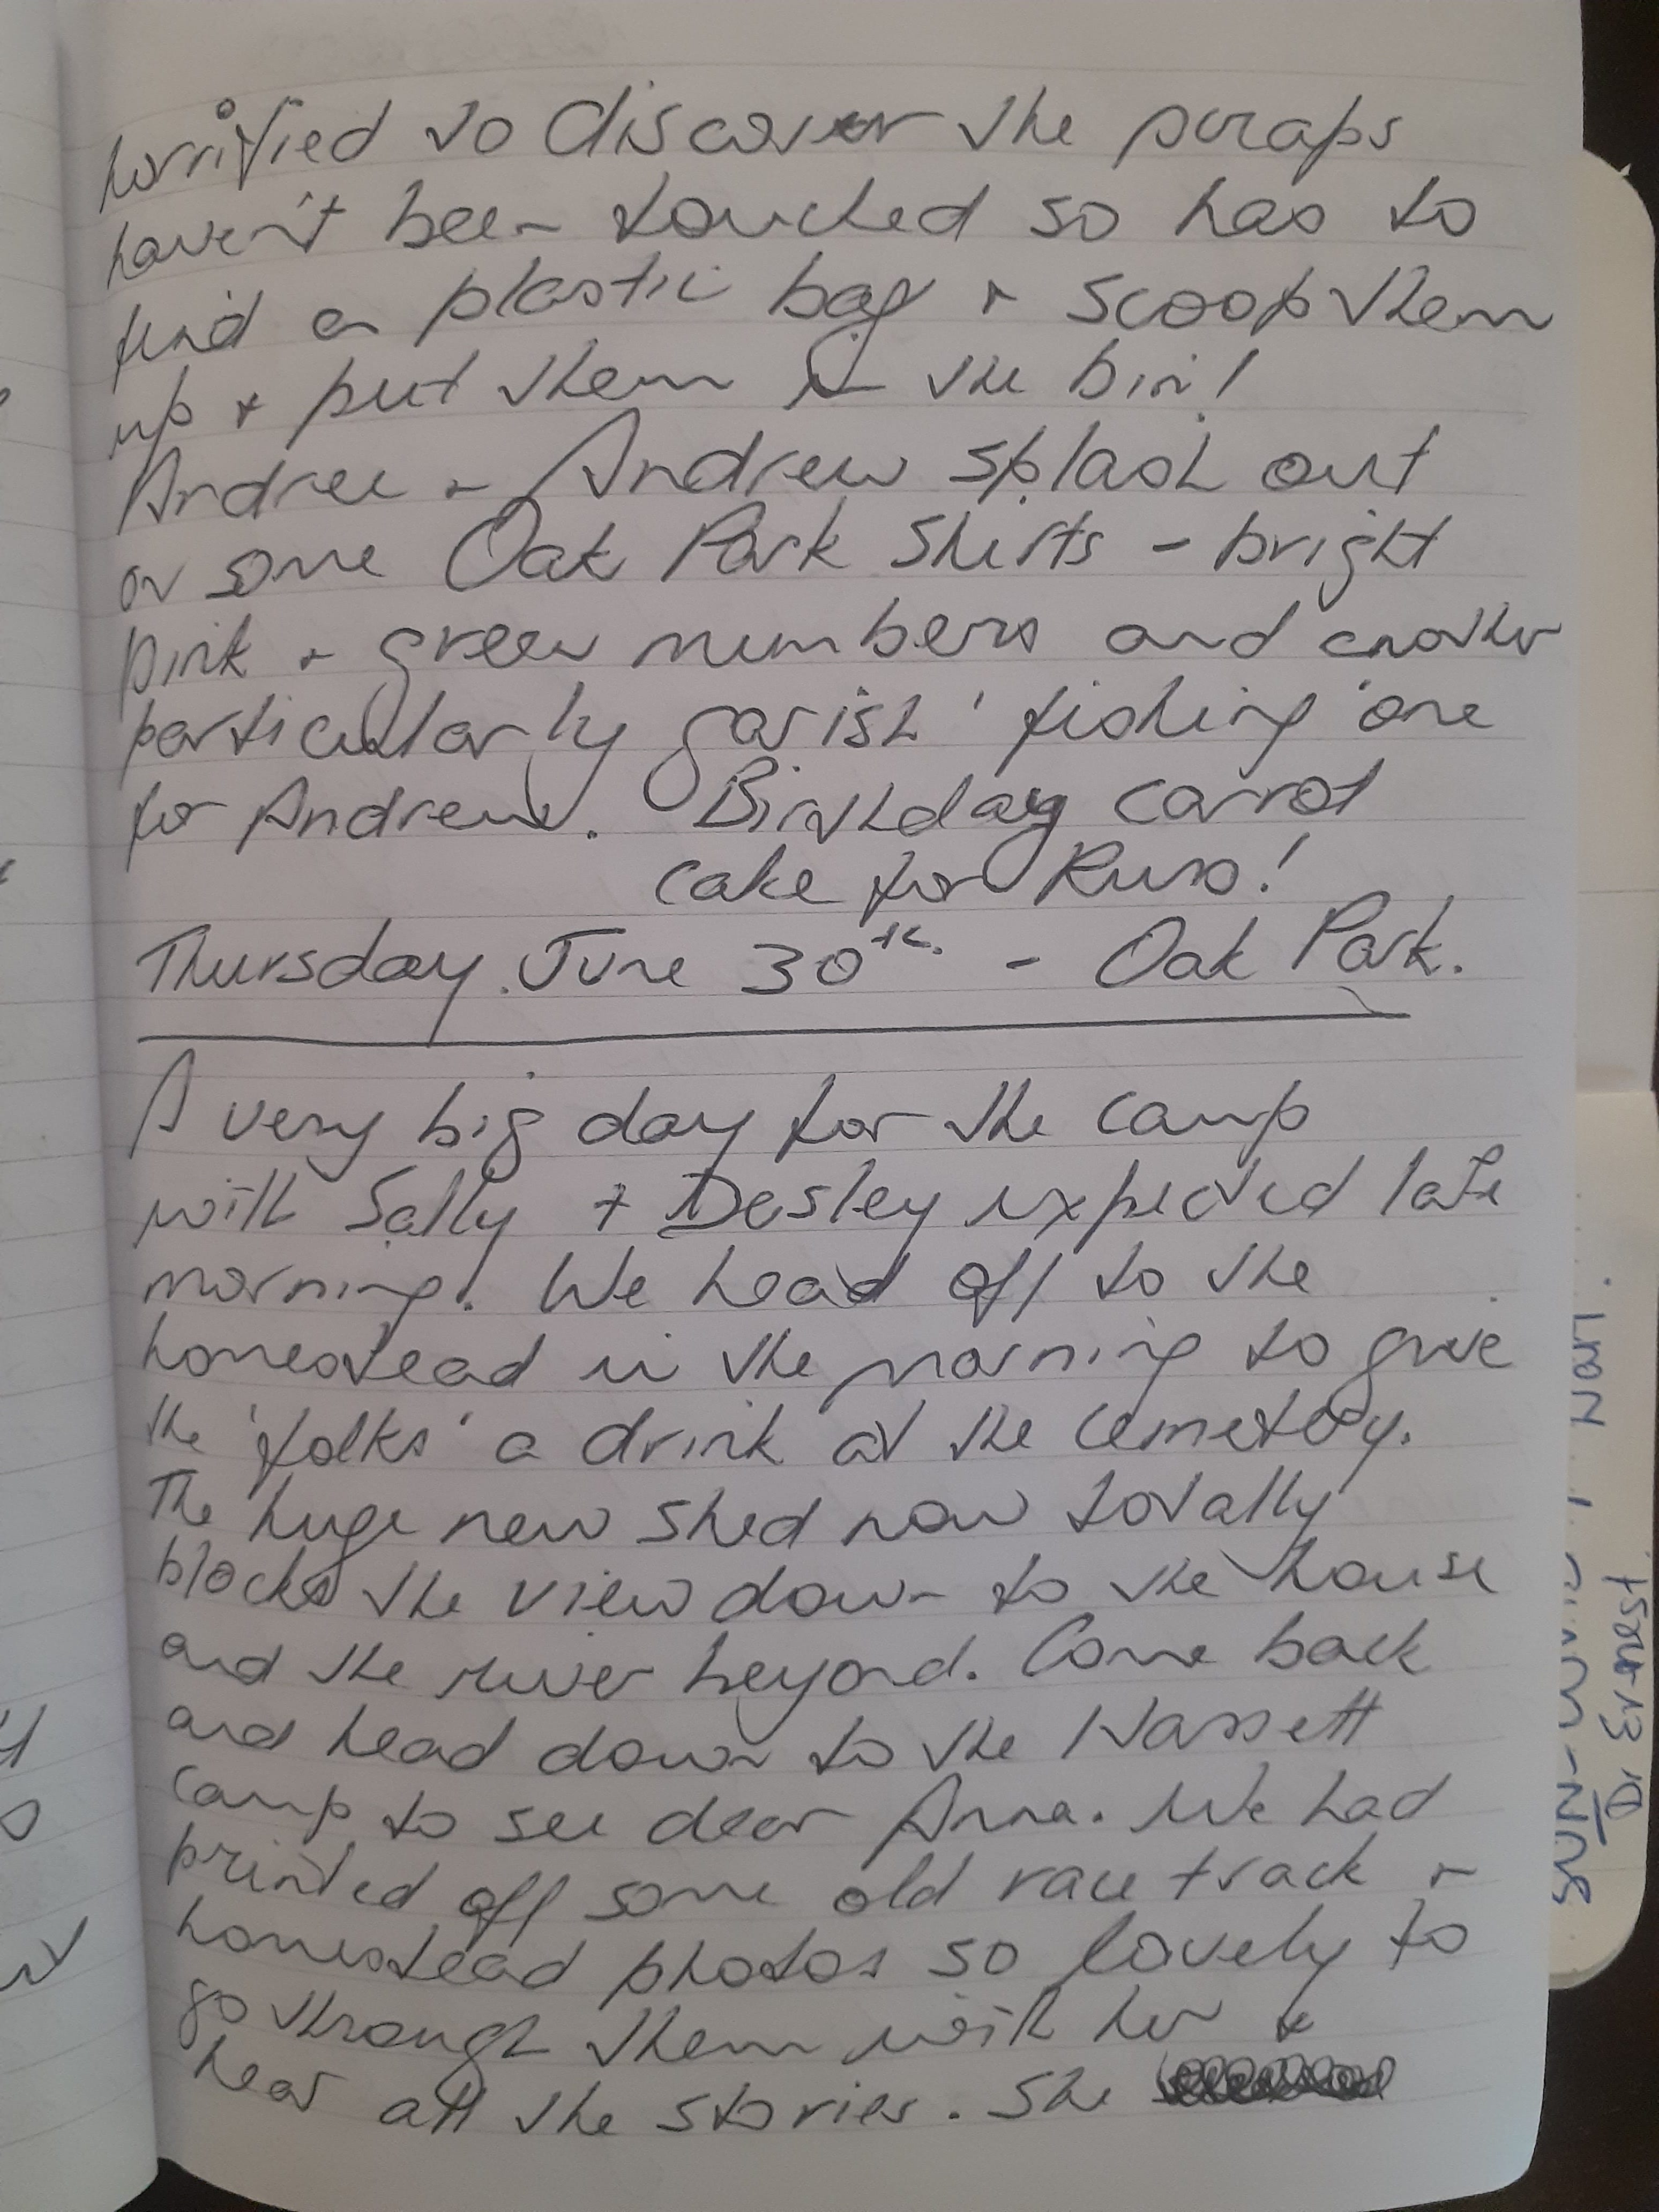 horrified to discover the scraps
haven't been touched so has to
find a plastic bag + scoop them
up + put them in the bin!
Andree + Andrew splash out
on some Oak Park Shirts - bright
pink + green numbers and another
particularly garish 'fishing' one
for Andrew. Birthday carrot
cake for Russ!
Thursday June 30th. - Oak Park.
A very big day for the camp
with Sally + Desley expected late
morning. We head off to the
homestead in the morning to give
the 'folks' a drink at the cemetery.
The huge new shed now totally
blocks the view down to the house
and the river beyond. Come back
and head down to the Hassett
camp to see dear Anna. We had
printed off some old race track +
homestead photos so lovely to
go through them with her +
hear all the stories. She
Nori.
SUN-
Dr Ernest.